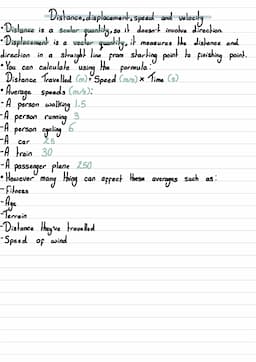 Distance, displacement, speed and velocity
• Distance is a scalar quantity, so it doesn't involve direction.
• Displacement is a vector quantity, it measures the distance and
direction in a straight line from starting point to finishing point.
• You can calculate using the formula:
Distance Travelled (m) = Speed (m/s) × Time (s)
• Average speeds (m/s):
- A person walking 1.5
- A person running 3
- A person cycling 6
- A car 25
- A train 30
- A passenger plane 250
• However many thing can affect these averages such as:
- Fitness
- Age
- Terrain
- Distance they've travelled
- Speed of wind